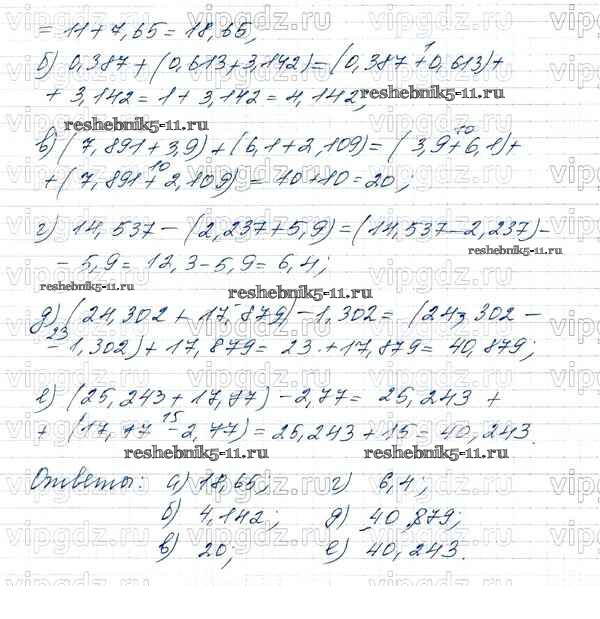 = 11 + 7,65 = 18,65;
б) 0,387 + (0,613 + 3,142) = (0,387 + 0,613) +
1
+ 3,142 = 1 + 3,142 = 4,142;
reshebnik5-11.ru
reshebnik5-11.ru
в) (7,891 + 3,9) + (6,1 + 2,109) = (3,9 + 6,1) +
10
+ (7,891 + 2,109) = 10 + 10 = 20;
10
г) 14,537 – (2,237 + 5,9) = (14,537 – 2,237) –
reshebnik5-11.ru
– 5,9 = 12,3 – 5,9 = 6,4;
reshebnik5-11.ru
reshebnik5-11.ru
д) (24,302 + 17,879) – 1,302 = (24,302 –
23
– 1,302) + 17,879 = 23 + 17,879 = 40,879;
е) (25,243 + 17,77) – 2,77 = 25,243 +
15
+ (17,77 – 2,77) = 25,243 + 15 = 40,243.
reshebnik5-11.ru
reshebnik5-11.ru
Ответы: а) 18,65; г) 6,4;
б) 4,142; д) 40,879;
в) 20; е) 40,243.
vipgdz.ru